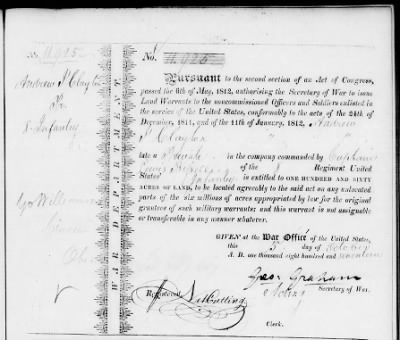 No. 11,925
Andrew J Clayton
Pr.
8 Infantry
WAR DEPARTMENT.
No. 11,925
Pursuant to the second section of an Act of Congress,
passed the 6th of May, 1812, authorising the Secretary of War to issue
Land Warrants to the noncommissioned Officers and Soldiers enlisted in
the service of the United States, conformably to the acts of the 24th of
December, 1811, and of the 11th of January, 1812, Andrew
J Clayton
late a Private in the company commanded by Captain
of the 8 Regiment United
States' Infantry is entitled to ONE HUNDRED and SIXTY
ACRES OF LAND, to be located agreeably to the said act on any unlocated
part of the six millions of acres appropriated by law for the original
grantees of such military warrants: and this warrant is not assignable
or transferable in any manner whatever.
GIVEN at the War Office of the United States,
this 5 day of October
A. D. one thousand eight hundred and seventeen
Geo: Graham
Acting Secretary of War.
Registered,
Clerk.